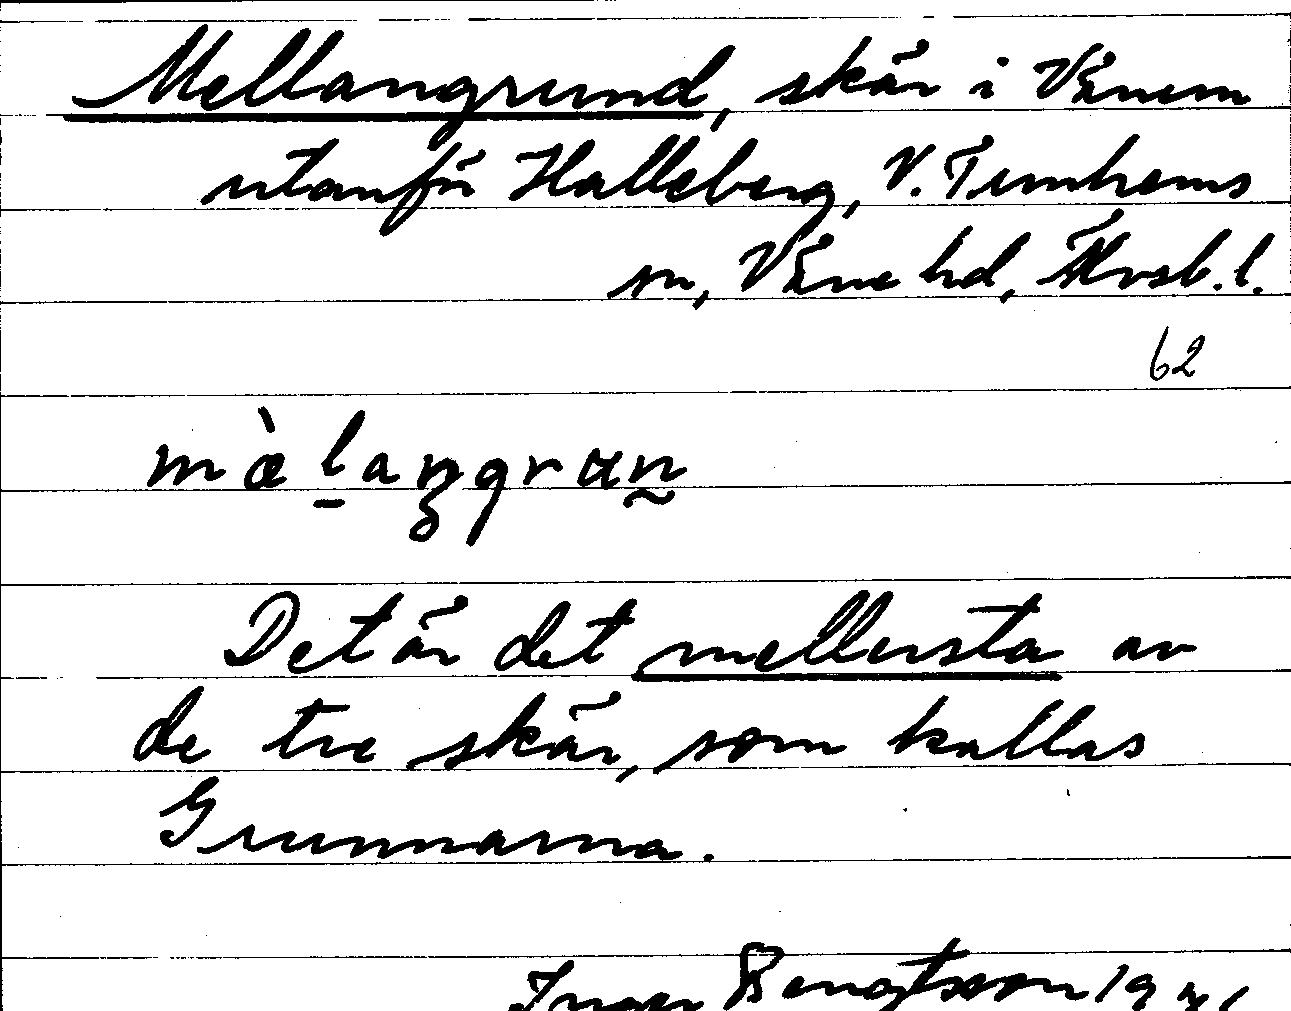 Mellangrund, skär i Vänern
utanför Halleberg, V. Tunhems
sn, Väne hd, Älvsb. l.
62
mæ̀l̠aŋgrun̰
Det är det mellersta av
de tre skär, som kallas
Grunnarna.
Bengtsson